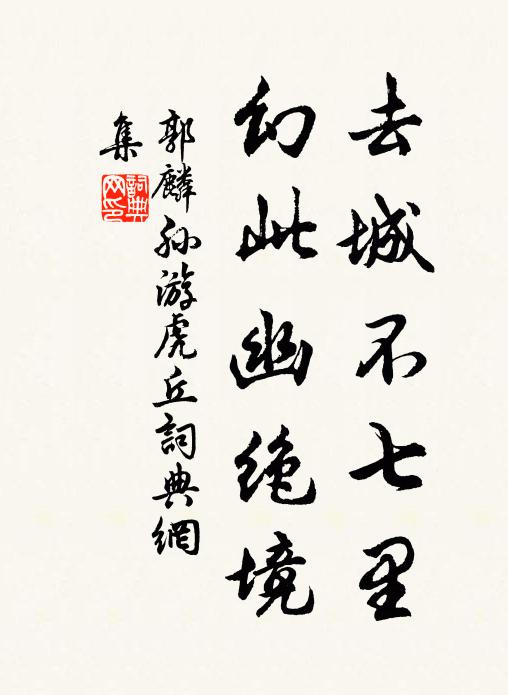 去城不七里
幻此幽絶境
郭麟孙游虎丘詞典網
集
詞典网印